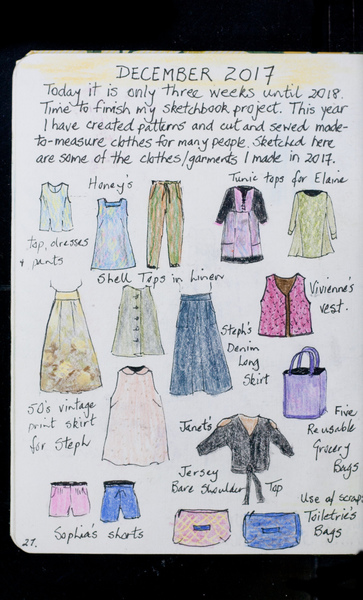 DECEMBER 2017
Today it is only three weeks until 2018.
Time to finish my sketchbook project. This year
I have created patterns and cut and sewed made-
to-measure clothes for many people. Sketched here
are some of the clothes/garments I made in 2017.
Honey's
top, dresses
+ pants
Tunic tops for Elaine
Shell Tops in Linen
Vivienne's
vest.
Steph's
Denim
Long
Skirt
50's vintage
print skirt
for Steph
Janet's
Jersey
Bare Shoulder Top
Five
Reusable
Grocery
Bags
Sophia's shorts
Use of scraps
Toiletrie's
Bags
27.